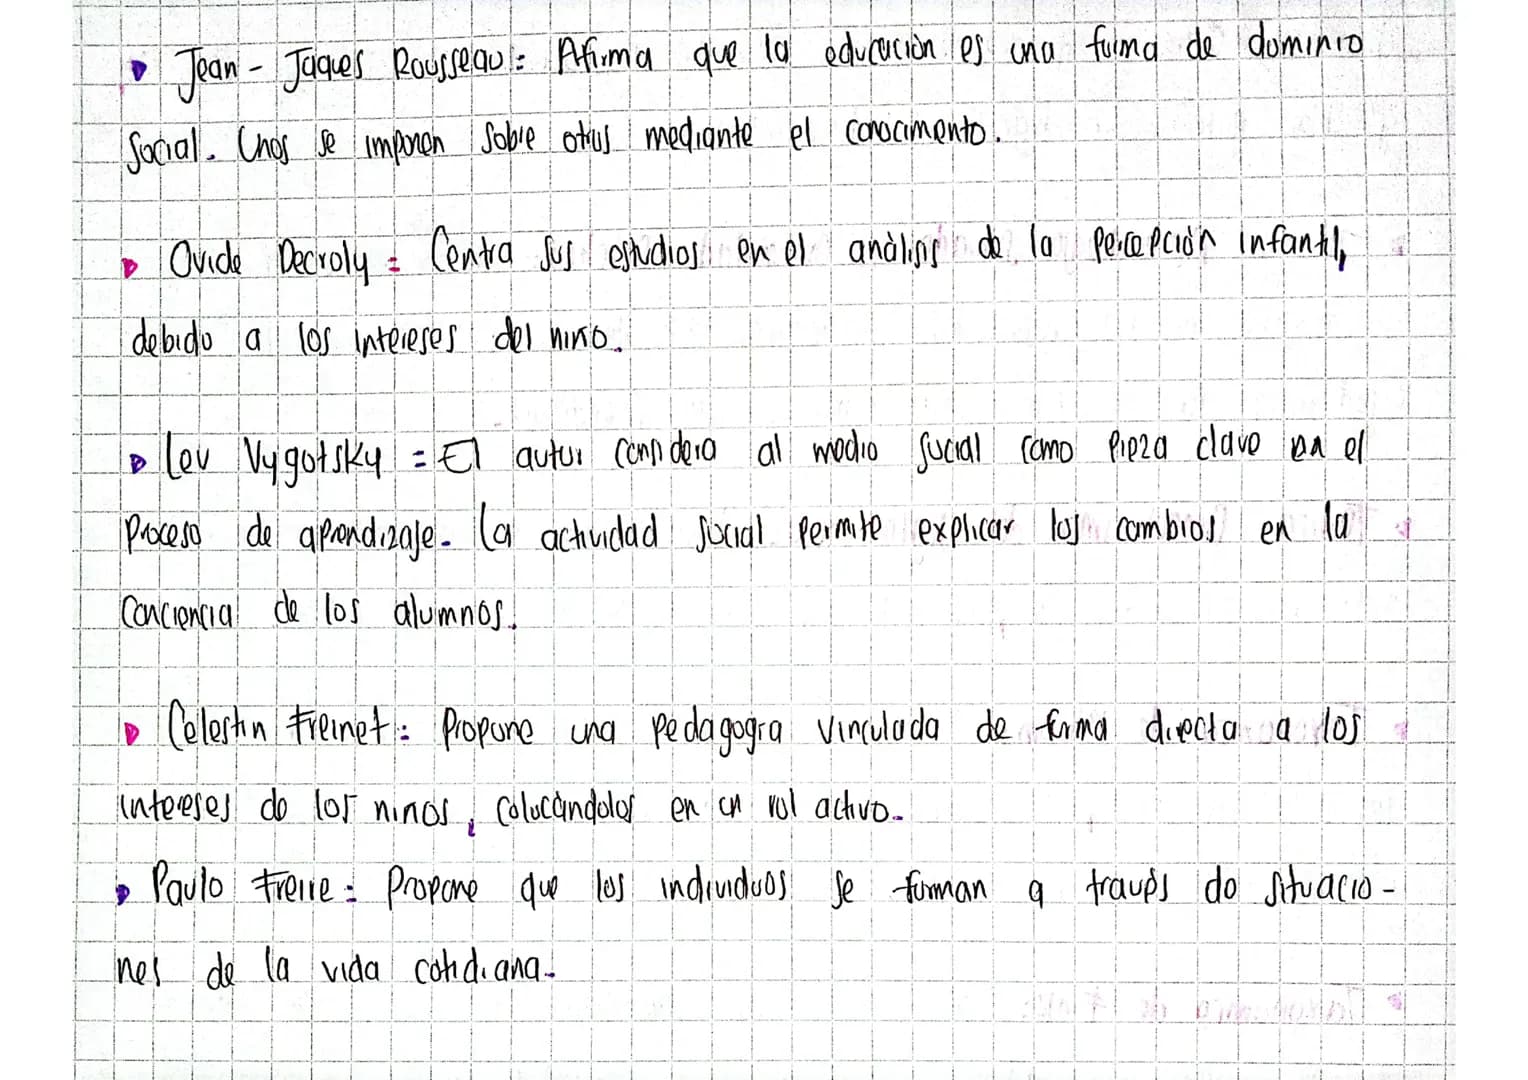 Jean - Jaques Rousseau: Afirma que la educación es una forma de dominio
Social. Unos se imponen sobre otros mediante el conocimento.
Ovide Decroly = Centra sus estudios en el análisis de la percepción infantil,
debido a los intereses del niño.
Lev Vygotsky = El autor considera al medio social como pieza clave en el
proceso de aprendizaje. La actividad social permite explicar los cambios en la
conciencia de los alumnos.
Celestin Freinet: Propone una pedagogía vinculada de forma directa a los
intereses de los niños, colocándolos en un rol activo.
Paulo Freire: Propone que los individuos se forman a través de situacio-
nes de la vida cotidiana.